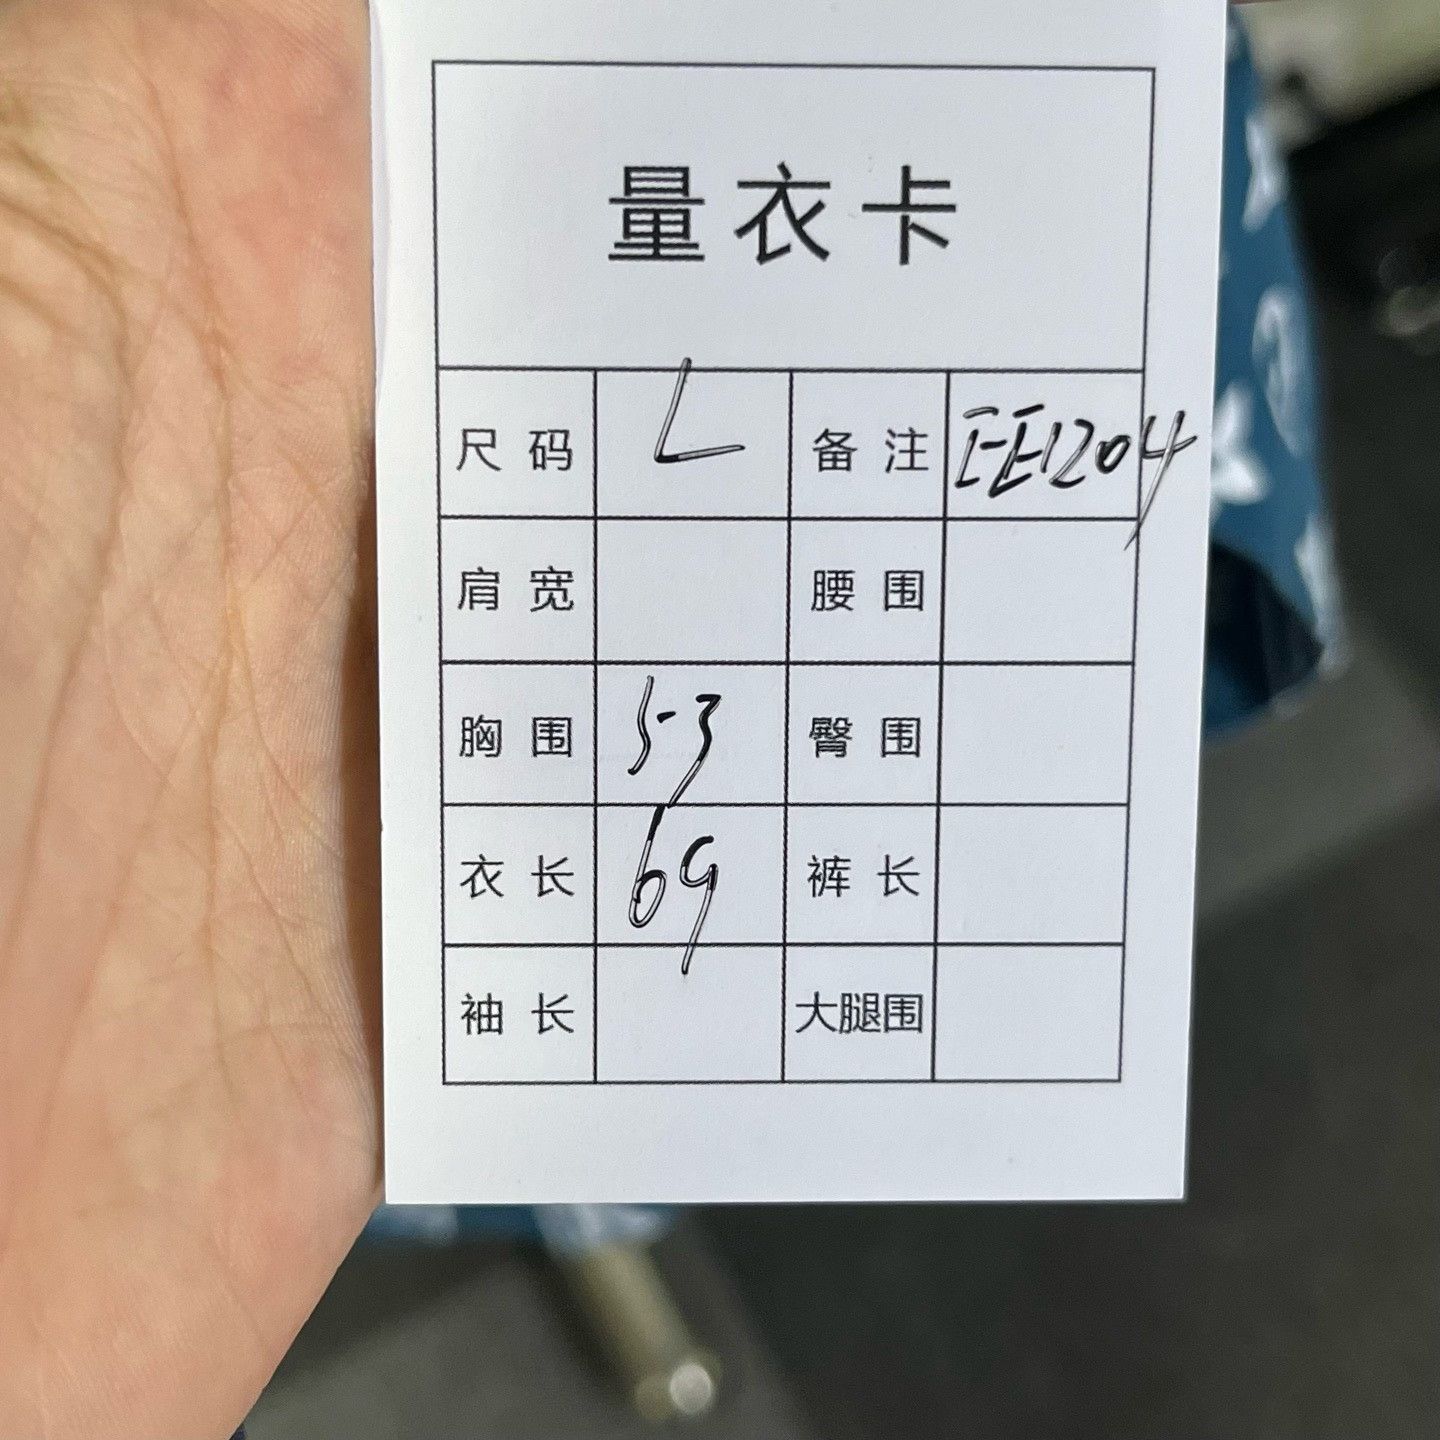 量衣卡
尺码 L 备注 EE1204
肩宽 腰围
胸围 53 臀围
衣长 69 裤长
袖长 大腿围